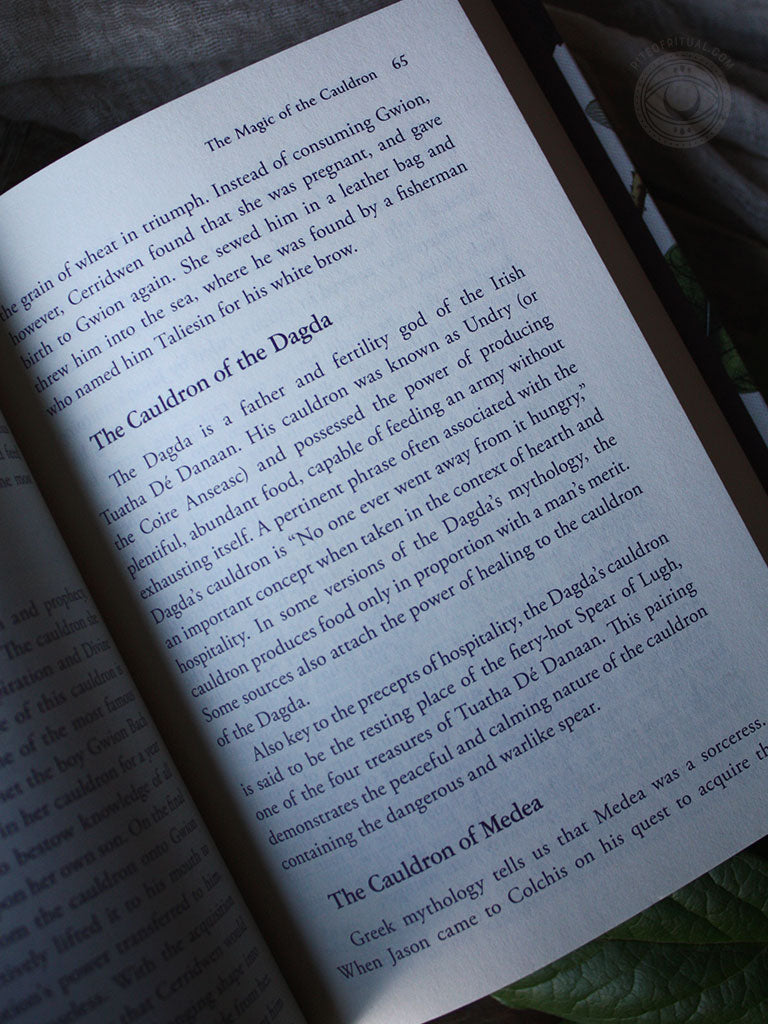 RITEOFRITUAL.COM
The Magic of the Cauldron 65
the grain of wheat in triumph. Instead of consuming Gwion,
however, Cerridwen found that she was pregnant, and gave
birth to Gwion again. She sewed him in a leather bag and
threw him into the sea, where he was found by a fisherman
who named him Taliesin for his white brow.
The Cauldron of the Dagda
The Dagda is a father and fertility god of the Irish
Tuatha Dé Danaan. His cauldron was known as Undry (or
the Coire Anseasc) and possessed the power of producing
plentiful, abundant food, capable of feeding an army without
exhausting itself. A pertinent phrase often associated with the
Dagda's cauldron is “No one ever went away from it hungry,”
an important concept when taken in the context of hearth and
hospitality. In some versions of the Dagda's mythology, the
cauldron produces food only in proportion with a man's merit.
Some sources also attach the power of healing to the cauldron
of the Dagda.
Also key to the precepts of hospitality, the Dagda's cauldron
is said to be the resting place of the fiery-hot Spear of Lugh,
one of the four treasures of Tuatha Dé Danaan. This pairing
demonstrates the peaceful and calming nature of the cauldron
containing the dangerous and warlike spear.
The Cauldron of Medea
Greek mythology tells us that Medea was a sorceress.
When Jason came to Colchis on his quest to acquire
and prophecy
The cauldron
and Divine
of this cauldron
of the most famous
the boy Gwion Bach
in her cauldron for a year
bestow knowledge of all
her own son. On the final
the cauldron onto Gwion
lifted it to his mouth
power transferred to him
With the acquisition
that Cerridwen would
shape into
from her
him